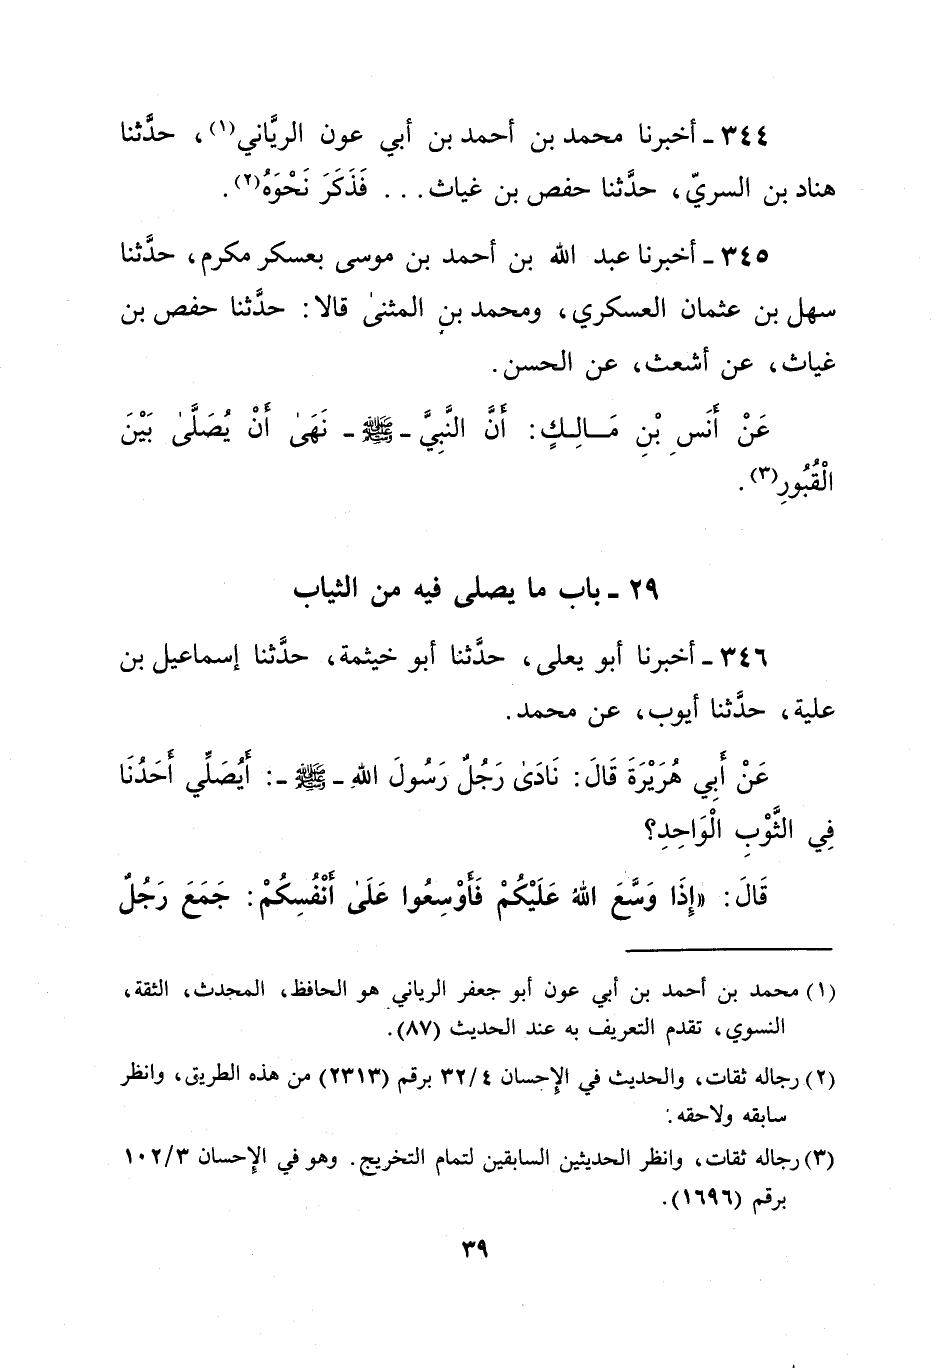 ٣٤٤ ـ أخبرنا محمد بن أحمد بن أبي عون الريَّاني(١)، حدَّثنا
هناد بن السريّ، حدَّثنا حفص بن غياث... فَذَكَرَ نَحْوَهُ(٢).
٣٤٥ ـ أخبرنا عبد الله بن أحمد بن موسى بعسكر مكرم، حدَّثنا
سهل بن عثمان العسكري، ومحمد بن المثنىٰ قالا: حدَّثنا حفص بن
غياث، عن أشعث، عن الحسن.
عَنْ أَنَسِ بْنِ مَـالِـكٍ: أَنَّ النَّبِيَّ ـ ﷺ ـ نَهَىٰ أَنْ يُصَلَّىٰ بَيْنَ
الْقُبُورِ(٣).
٢٩ ـ باب ما يصلى فيه من الثياب
٣٤٦ ـ أخبرنا أبو يعلى، حدَّثنا أبو خيثمة، حدَّثنا إسماعيل بن
علية، حدَّثنا أيوب، عن محمد.
عَنْ أَبِي هُرَيْرَةَ قَالَ: نَادَىٰ رَجُلٌ رَسُولَ اللهِ ـ ﷺ ـ: أَيُصَلِّي أَحَدُنَا
فِي الثَّوْبِ الْوَاحِدِ؟
قَالَ: «إِذَا وَسَّعَ اللهُ عَلَيْكُمْ فَأَوْسِعُوا عَلَىٰ أَنْفُسِكُمْ: جَمَعَ رَجُلٌ
(١) محمد بن أحمد بن أبي عون أبو جعفر الرياني هو الحافظ، المحدث، الثقة،
النسوي، تقدم التعريف به عند الحديث (٨٧).
(٢) رجاله ثقات، والحديث في الإحسان ٣٢/٤ برقم (٢٣١٣) من هذه الطريق، وانظر
سابقه ولاحقه.
(٣) رجاله ثقات، وانظر الحديثين السابقين لتمام التخريج. وهو في الإحسان ١٠٢/٣
برقم (١٦٩٦).
٣٩